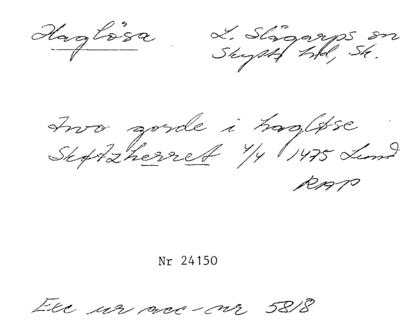 Haglösa L. Slågarps sn
Skytts hd, Sk.
two gorde i hagløse
Skøtzherret 4/4 1475 Lund
RAP
Nr 24150
Exc ur acc-nr 5818